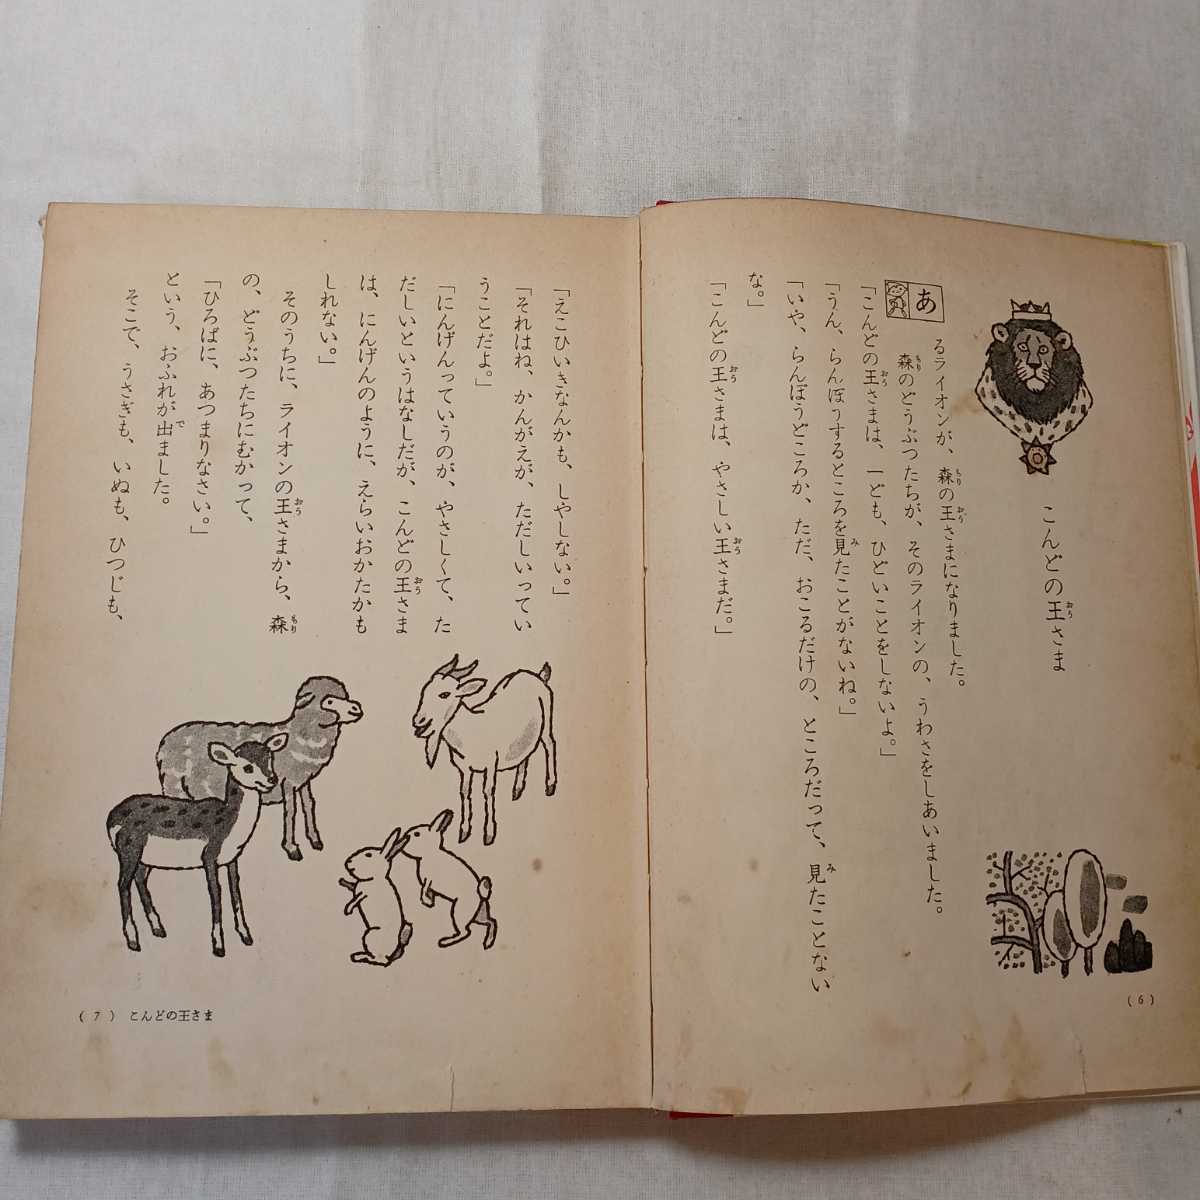 こんどの王さま
あるライオンが、森の王さまになりました。
森のどうぶつたちが、そのライオンの、うわさをしあいました。
「こんどの王さまは、一ども、ひどいことをしないよ。」
「うん、らんぼうするところを見たことがないね。」
「いや、らんぼうどころか、ただ、おこるだけの、ところだって、見たことない
な。」
「こんどの王さまは、やさしい王さまだ。」
(6)
「えこひいきなんかも、しやしない。」
「それはね、かんがえが、ただしいってい
うことだよ。」
「にんげんっていうのが、やさしくて、た
だしいというはなしだが、こんどの王さま
は、にんげんのように、えらいおかたかも
しれない。」
そのうちに、ライオンの王さまから、森
の、どうぶつたちにむかって、
「ひろばに、あつまりなさい。」
という、おふれが出ました。
そこで、うさぎも、いぬも、ひつじも、
(7) こんどの王さま